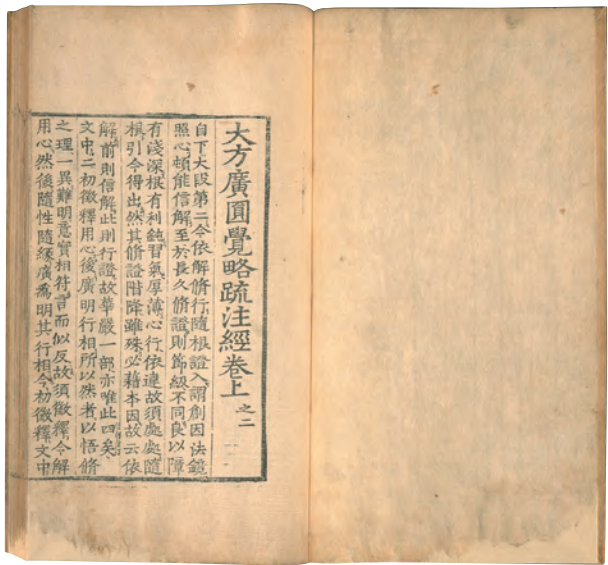 大方廣圓覺略疏注經卷上 之二
自下大段第二令依解脩行隨根證入謂創因法鏡
照心頓能信解至於長久脩證則節級不同良以障
有淺深根有利鈍習氣厚薄心行依違故須處處隨
根引令得出然其脩證階降雖殊必藉本因故云依
解前則信解此則行證故華嚴一部亦唯此四矣
文中二初徵釋用心後廣明行相所以然者以悟脩
之理一異難明意實相符言而似反故須徵釋令解
用心然後隨性隨緣廣爲明其行相今初徵釋文中